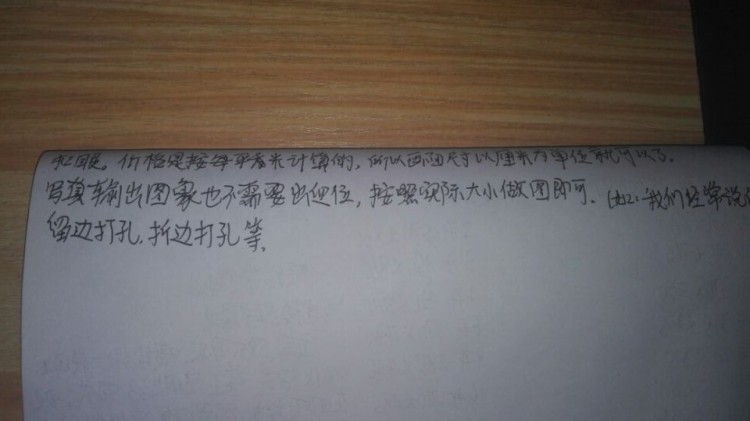 价格是按每平方来计算的，所以画面尺寸以厘米为单位就可以了。
写真输出图象也不需要出血位，按照实际大小做图即可。比如：我们经常说的
留边打孔，折边打孔等。